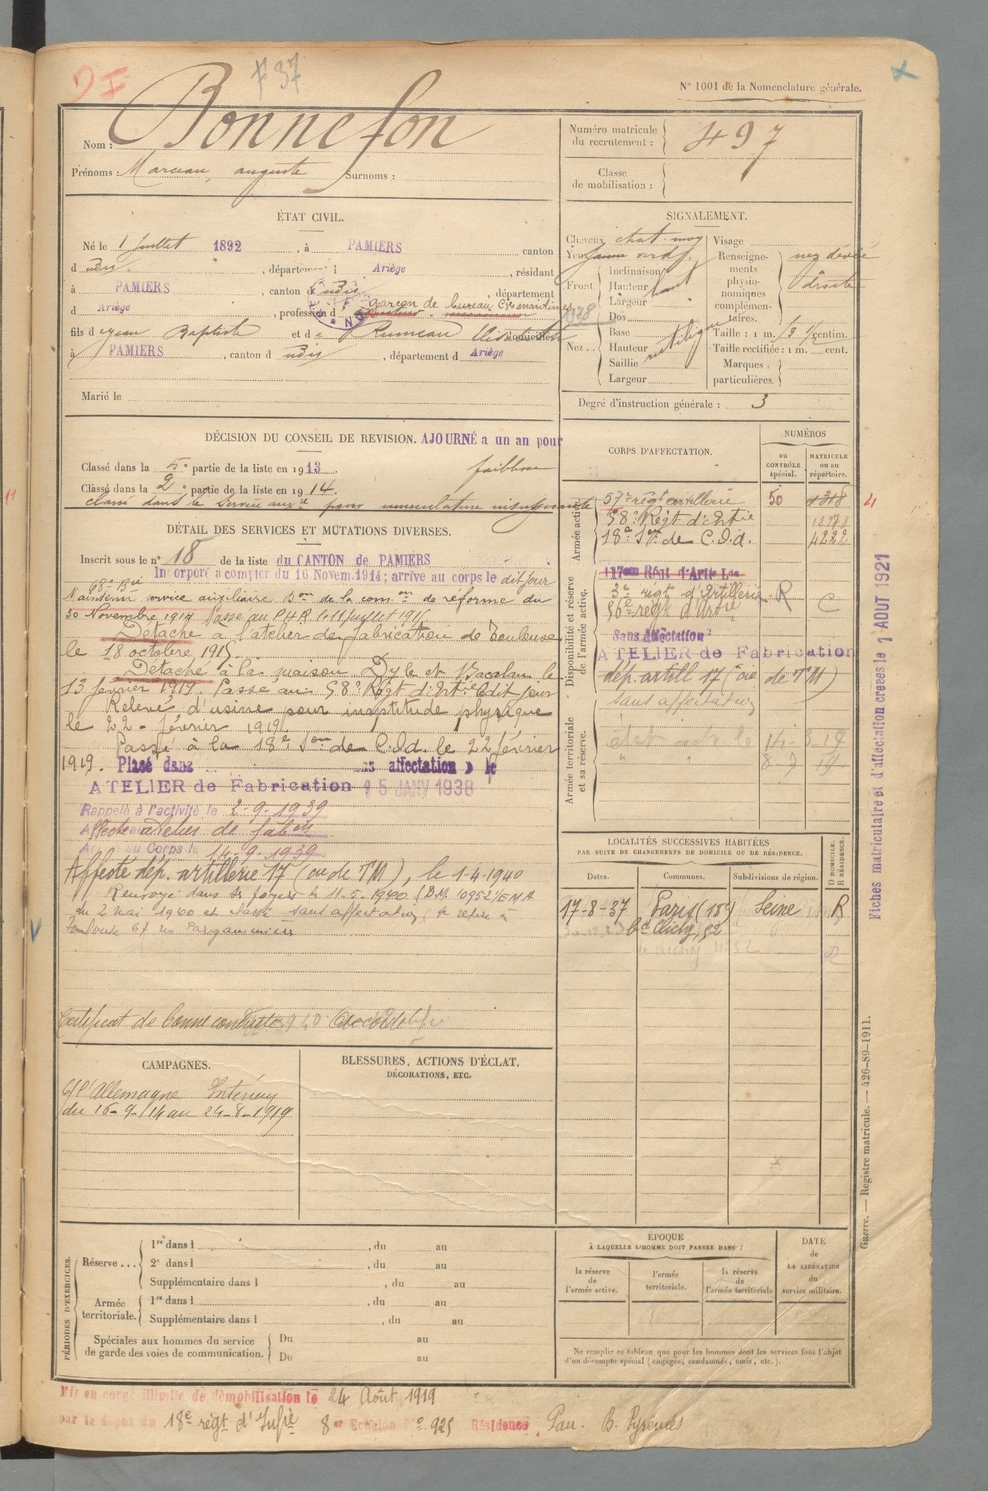 N° 1001 de la Nomenclature générale.
# 37
Nom : Bonnefon
Prénoms : Marceau, auguste Surnoms :
Numéro matricule du recrutement : 497
Classe de mobilisation :
ÉTAT CIVIL.
Né le 1 juillet 1892, à PAMIERS canton
d udis, département d Ariège, résidant
à PAMIERS, canton d udis, département
d Ariège, profession d garçon de bureau
fils d Jean Baptiste et d Rumeau domiciliés
à PAMIERS, canton d udis, département d Ariège
Marié le
SIGNALEMENT.
Cheveux chat. moy
Yeux jaune verd.
Front. Inclinaison
Hauteur haut
Largeur
Nez. Dos
Base
Hauteur rectiligne
Saillie
Largeur
Visage
Renseignements physionomiques complémentaires. nez dévié
droite
Taille : 1 m. centim.
Taille rectifiée : 1 m. cent.
Marques particulières.
Degré d'instruction générale : 3
DÉCISION DU CONSEIL DE REVISION. AJOURNÉ a un an pour
Classé dans la 5e partie de la liste en 1913. faiblesse
Classé dans la 2e partie de la liste en 1914.
classé dans le service auxre pour musculature insuffisante
DÉTAIL DES SERVICES ET MUTATIONS DIVERSES.
Inscrit sous le n° 18 de la liste du CANTON de PAMIERS
Incorporé à compter du 16 Novem. 1914; arrivé au corps le dit jour
Maintenu service auxiliaire Don de la comon de réforme du
30 Novembre 1914
Détaché à l'atelier de fabrication de Toulouse
le 18 octobre 1915.
Détaché à la maison Dyle et Bacalan le
13 février 1919. Passé au 58e Régt d'Artie le dit jour
Relevé d'usine pour inaptitude physique
le 22 février 1919.
Passé à la 18e Son de C.O.A. le 22 février
1919. Placé dans sans affectation » le
ATELIER de Fabrication 15 JANV 1938
Rappelé à l'activité le 2-9-1939
Affecté atelier de fabon
Arrivé au Corps le 14-9-1939
Affecté dép. artillerie 17 (ou de TM), le 1-4-1940
Renvoyé dans ses foyers le 11-5-1940 (D.M. 10952/EMA
du 2 mai 1940 et classé sans affectation, se retire à
Toulouse 67 rue Pargaminières
Certificat de bonne conduite Accordé
CORPS D'AFFECTATION.
NUMÉROS
AU CONTRÔLE spécial.
MATRICULE ou au répertoire.
Armée active.
57e régt artillerie 50
58e Régt d'Artie
18e Son de C.O.A. 4222
Disponibilité et réserve de l'armée active.
117em Régt d'Artie Lde
3e régt d'Artillerie R
56e régt d'Artie
Sans Affectation
ATELIER de Fabrication
dép. artill 17 (ou de TM)
sans affectation
Armée territoriale et sa réserve.
LOCALITÉS SUCCESSIVES HABITÉES
PAR SUITE DE CHANGEMENTS DE DOMICILE OU DE RÉSIDENCE.
Dates. Communes. Subdivisions de région. D DOMICILE. R RÉSIDENCE.
17-8-37 Paris (18e) Seine R
Bd Clichy, 52
CAMPAGNES.
C/ l'Allemagne Intérieur
du 16-9-14 au 24-8-1919
BLESSURES, ACTIONS D'ÉCLAT,
DÉCORATIONS, ETC.
PÉRIODES D'EXERCICES.
Réserve... 1re dans l , du au
2e dans l , du au
Supplémentaire dans l , du au
Armée territoriale. 1re dans l , du au
Supplémentaire dans l , du au
Spéciales aux hommes du service de garde des voies de communication. Du au
Du au
ÉPOQUE
À LAQUELLE L'HOMME DOIT PASSER DANS :
la réserve de l'armée active.
l'armée territoriale.
la réserve de l'armée territoriale
DATE de LA LIBÉRATION du service militaire.
Ne remplir ce tableau que pour les hommes dont les services font l'objet
d'un décompte spécial (engagés, condamnés, omis, etc.).
Mis en congé illimité de démobilisation le 24 Août 1919
par le dépôt du 18e régt d'Infie 8e Echelon N° 925 Résidence Pau. B. Pyrénées
Fiches matriculaire et d'affectation créées le 1 AOUT 1921
Guerre. — Registre matricule. — 426-89-1911.